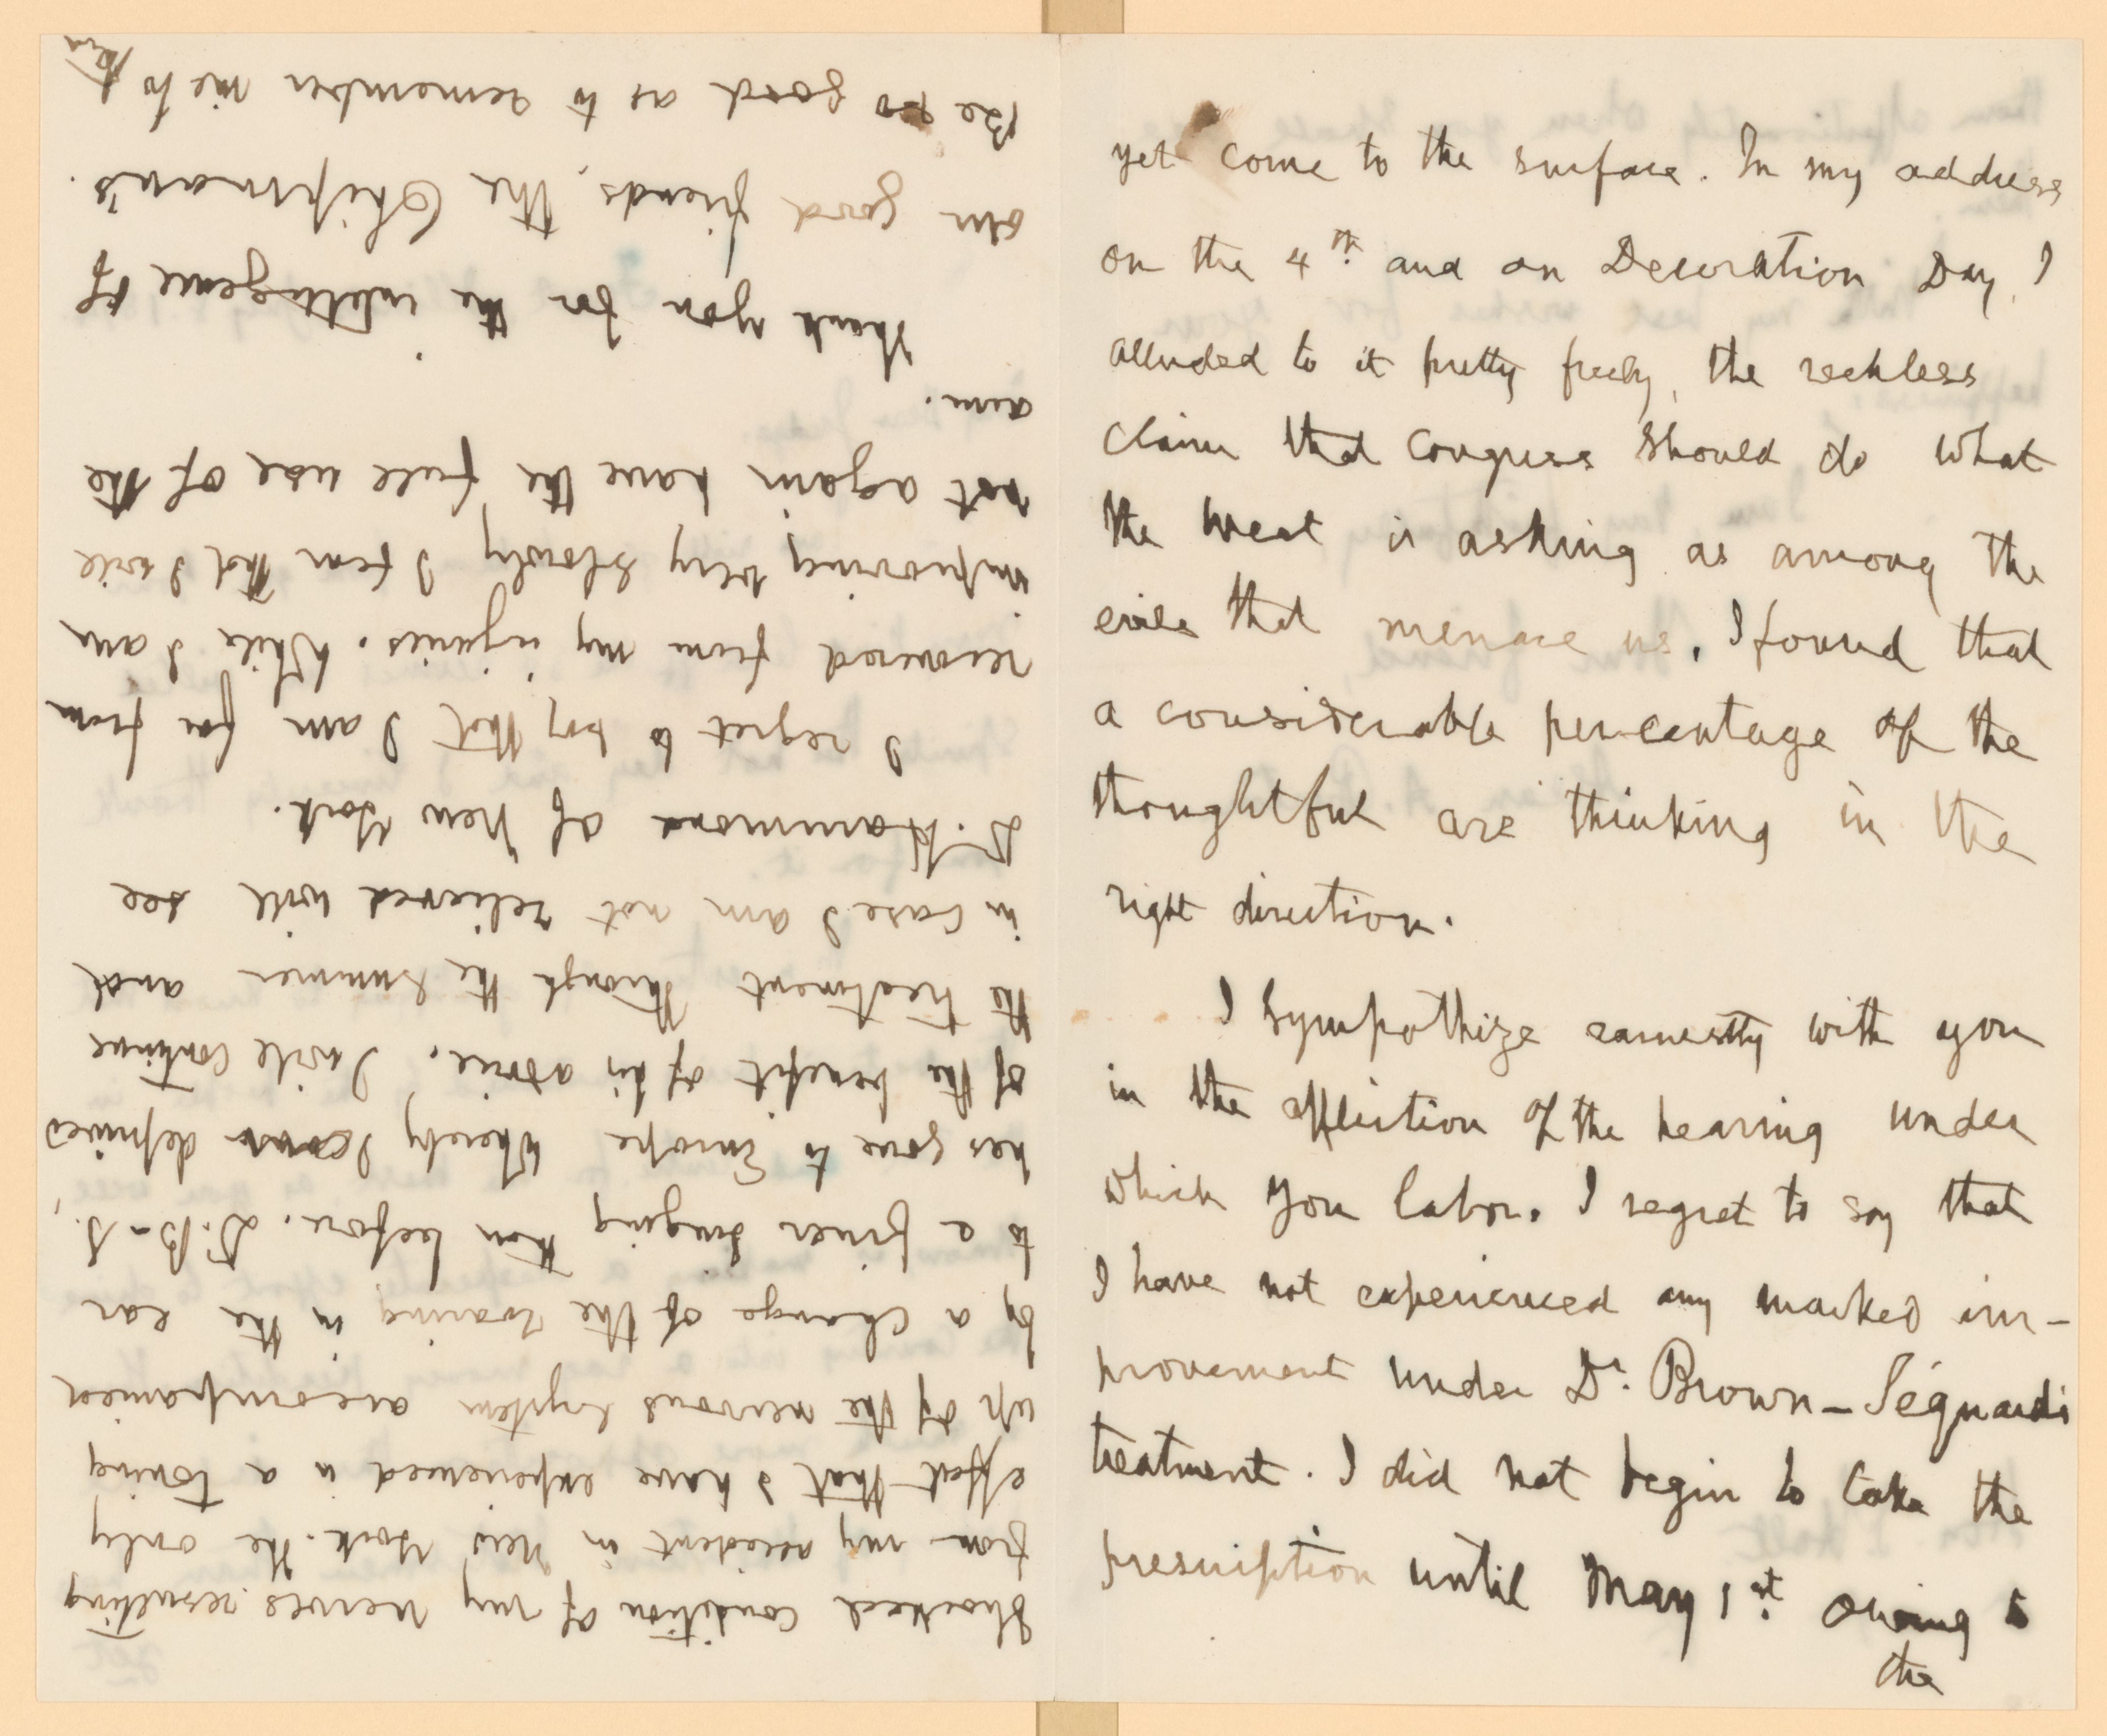 yet come to the surface. In my address
on the 4th. and on Decoration Day, I
alluded to it pretty freely, the reckless
claim that Congress should do what
the West is asking as among the
evils that menace us. I found that
a considerable percentage of the
thoughtful are thinking in the
right direction.
I sympathize earnestly with you
in the affliction of the hearing under
which you labor. I regret to say that
I have not experienced any marked im-
provement under Dr. Brown-Séquards
treatment. I did not begin to take the
prescription until May 1st. owing to
the
shocked condition of my nerves resulting
from my accident in New York. The only
effect that I have experienced is a toning
up of the nervous system accompanied
by a change of the roaring in the ear
to a finer singing than before. D. B-S.,
has gone to Europe whereby I am deprived
of the benefit of his advice. I will continue
the treatment through the summer and
in case I am not relieved will see
D. Hammond of New York.
I regret to say that I am far from
recovered from my injuries. While I am
improving very slowly I fear that I will
not again have the full use of the
arm.
Thank you for the intelligence of
our good friends, the Chipman's.
Be so good as to remember me to
them